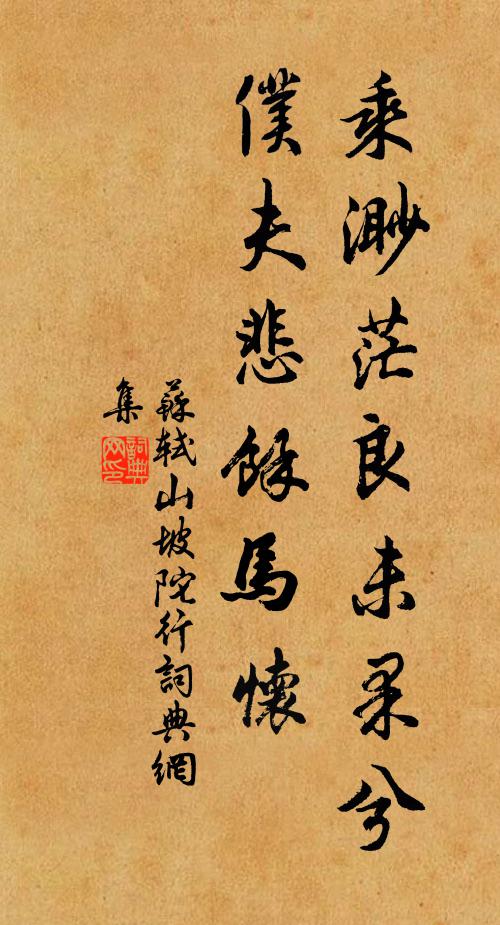 乘渺茫良未果兮
僕夫悲餘馬懷
蘇軾山坡陀行詞典網
集
詞典網印